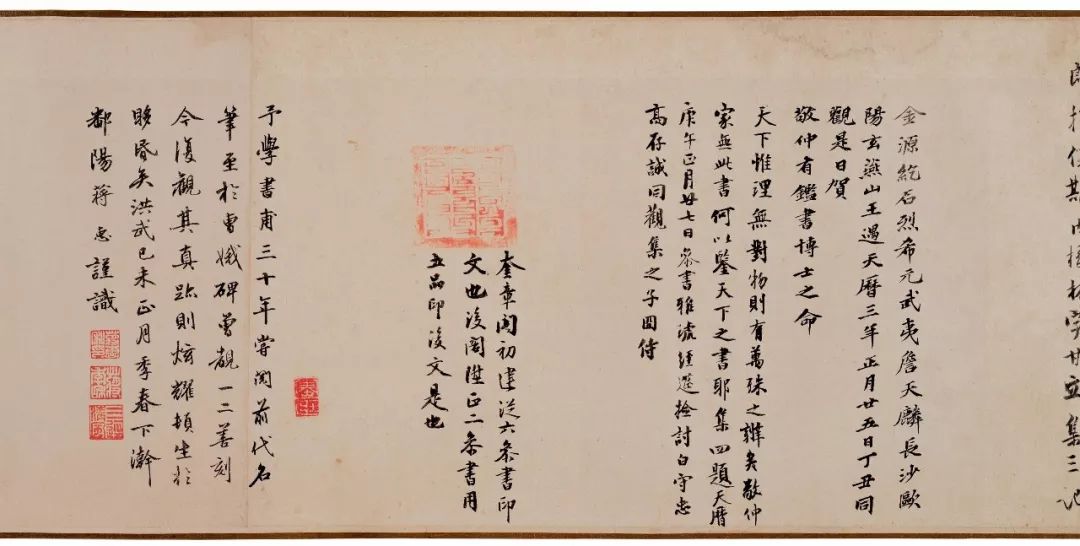 金源紇石烈希元武夷詹天麟長沙歐
陽玄燕山王遇天曆三年正月廿五日丁丑同
觀是日賀
敬仲有鑑書博士之命
天下惟理無對物則有萬殊之辨矣敬仲
家無此書何以鑒天下之書耶集四題天曆
庚午正月廿七日叅書雅琥經筵檢討白守忠
高存誠同觀集之子固侍
奎章閣初建從六叅書印
文也後閣陞正二叅書用
五品印後文是也
予學書甫三十年嘗閱前代名
筆至於曹娥碑曾覩一二善刻
今復觀其真跡則炫耀頓生於
眵昏矣洪武己未正月季春下澣
鄱陽蔣惠謹識